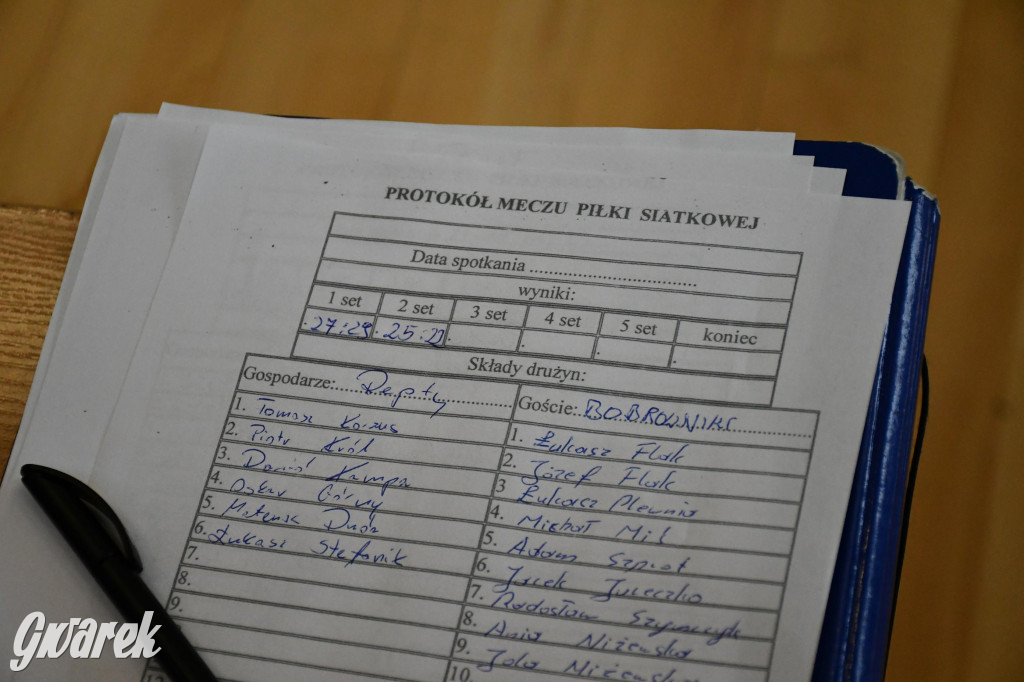 PROTOKÓŁ MECZU PIŁKI SIATKOWEJ
Data spotkania ...................................
wyniki:
1 set 2 set 3 set 4 set 5 set koniec
27:25 25:23
Składy drużyn:
Gospodarze: Repty
Goście: BOBROWNIKI
1. Tomasz
2. Piotr Król
3. Daniel Kampa
4. Oskar Górny
5. Mateusz Duda
6. Łukasz Stefanik
7.
8.
9.
1. Łukasz Flak
2. Józef Flak
3 Łukasz Plewnia
4. Michał Mil
5. Adam Szplot
6. Jacek Jureczko
7. Radosław Szymczyk
8. Ania Niżewska
9. Jola Niżewska
10.
12
Gwarek